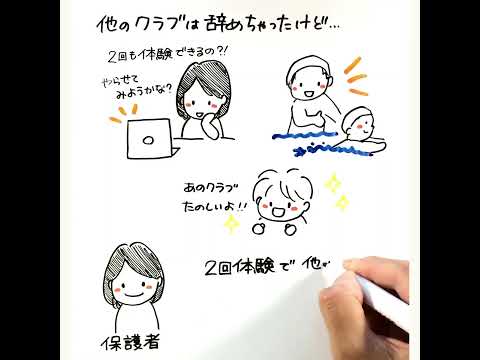 他のクラブは辞めちゃったけど...
2回も体験できるの?!
やらせて
みようかな?
あのクラブ
たのしいよ!!
2回体験で 他
保護者